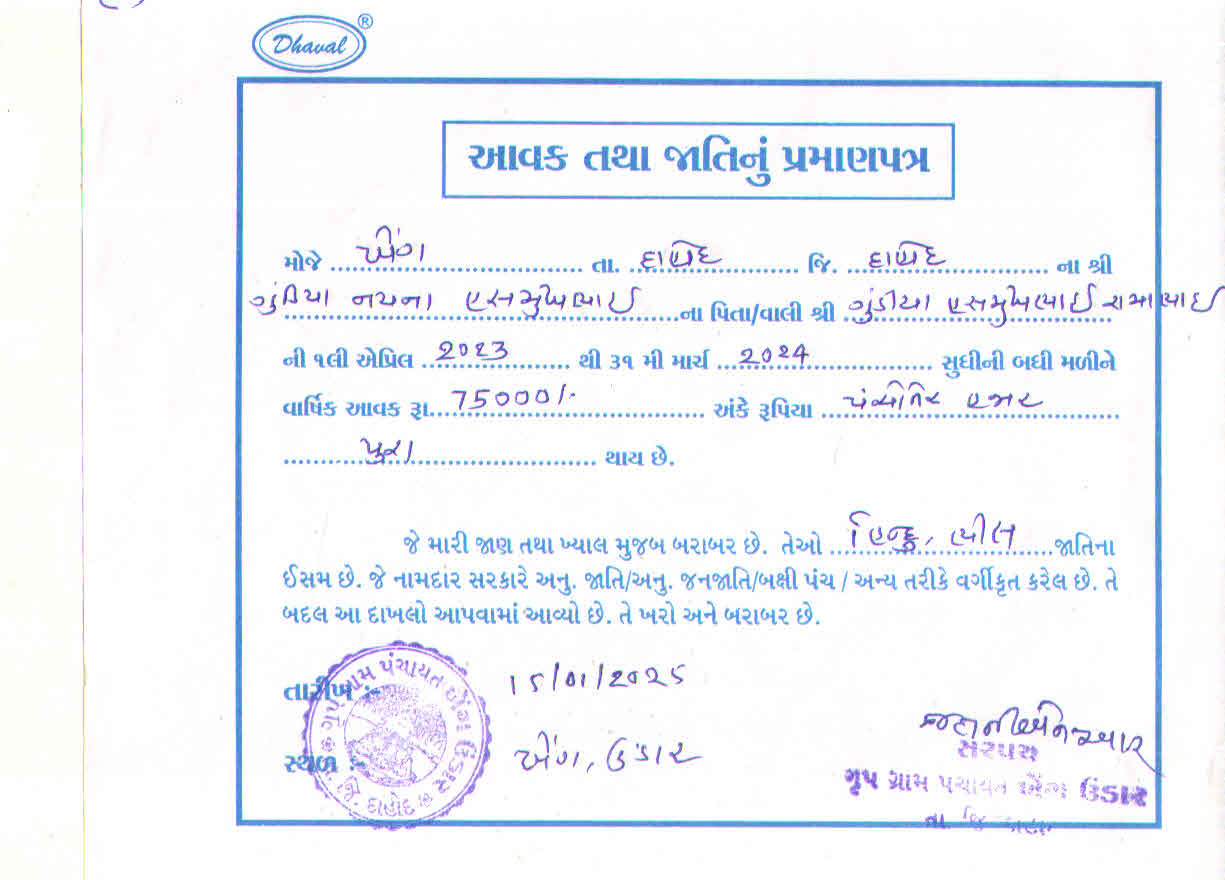 Dhaval ®
આવક તથા જાતિનું પ્રમાણપત્ર
મોજે ખેંગ તા. દાહોદ જિ. દાહોદ ના શ્રી
ગુંડિયા નયના હસમુખભાઈ ના પિતા/વાલી શ્રી ગુંડીયા હસમુખભાઈ રામાભાઈ
ની ૧લી એપ્રિલ 2023 થી ૩૧ મી માર્ચ 2024 સુધીની બધી મળીને
વાર્ષિક આવક રૂા. 75000/- અંકે રૂપિયા પંચોતેર હજાર
પુરા થાય છે.
જે મારી જાણ તથા ખ્યાલ મુજબ બરાબર છે. તેઓ હિન્દુ, ભીલ જાતિના
ઈસમ છે. જે નામદાર સરકારે અનુ. જાતિ/અનુ. જનજાતિ/બક્ષી પંચ / અન્ય તરીકે વર્ગીકૃત કરેલ છે. તે
બદલ આ દાખલો આપવામાં આવ્યો છે. તે ખરો અને બરાબર છે.
તારીખ :- 15/01/2025
સ્થળ :- ખેંગ, ઉંડાર
ગૃપ ગ્રામ પંચાયત ખેંગ ઉંડાર
જિ. દાહોદ
સરપંચ
ગૃપ ગ્રામ પંચાયત ખેંગ ઉંડાર
તા. જિ.